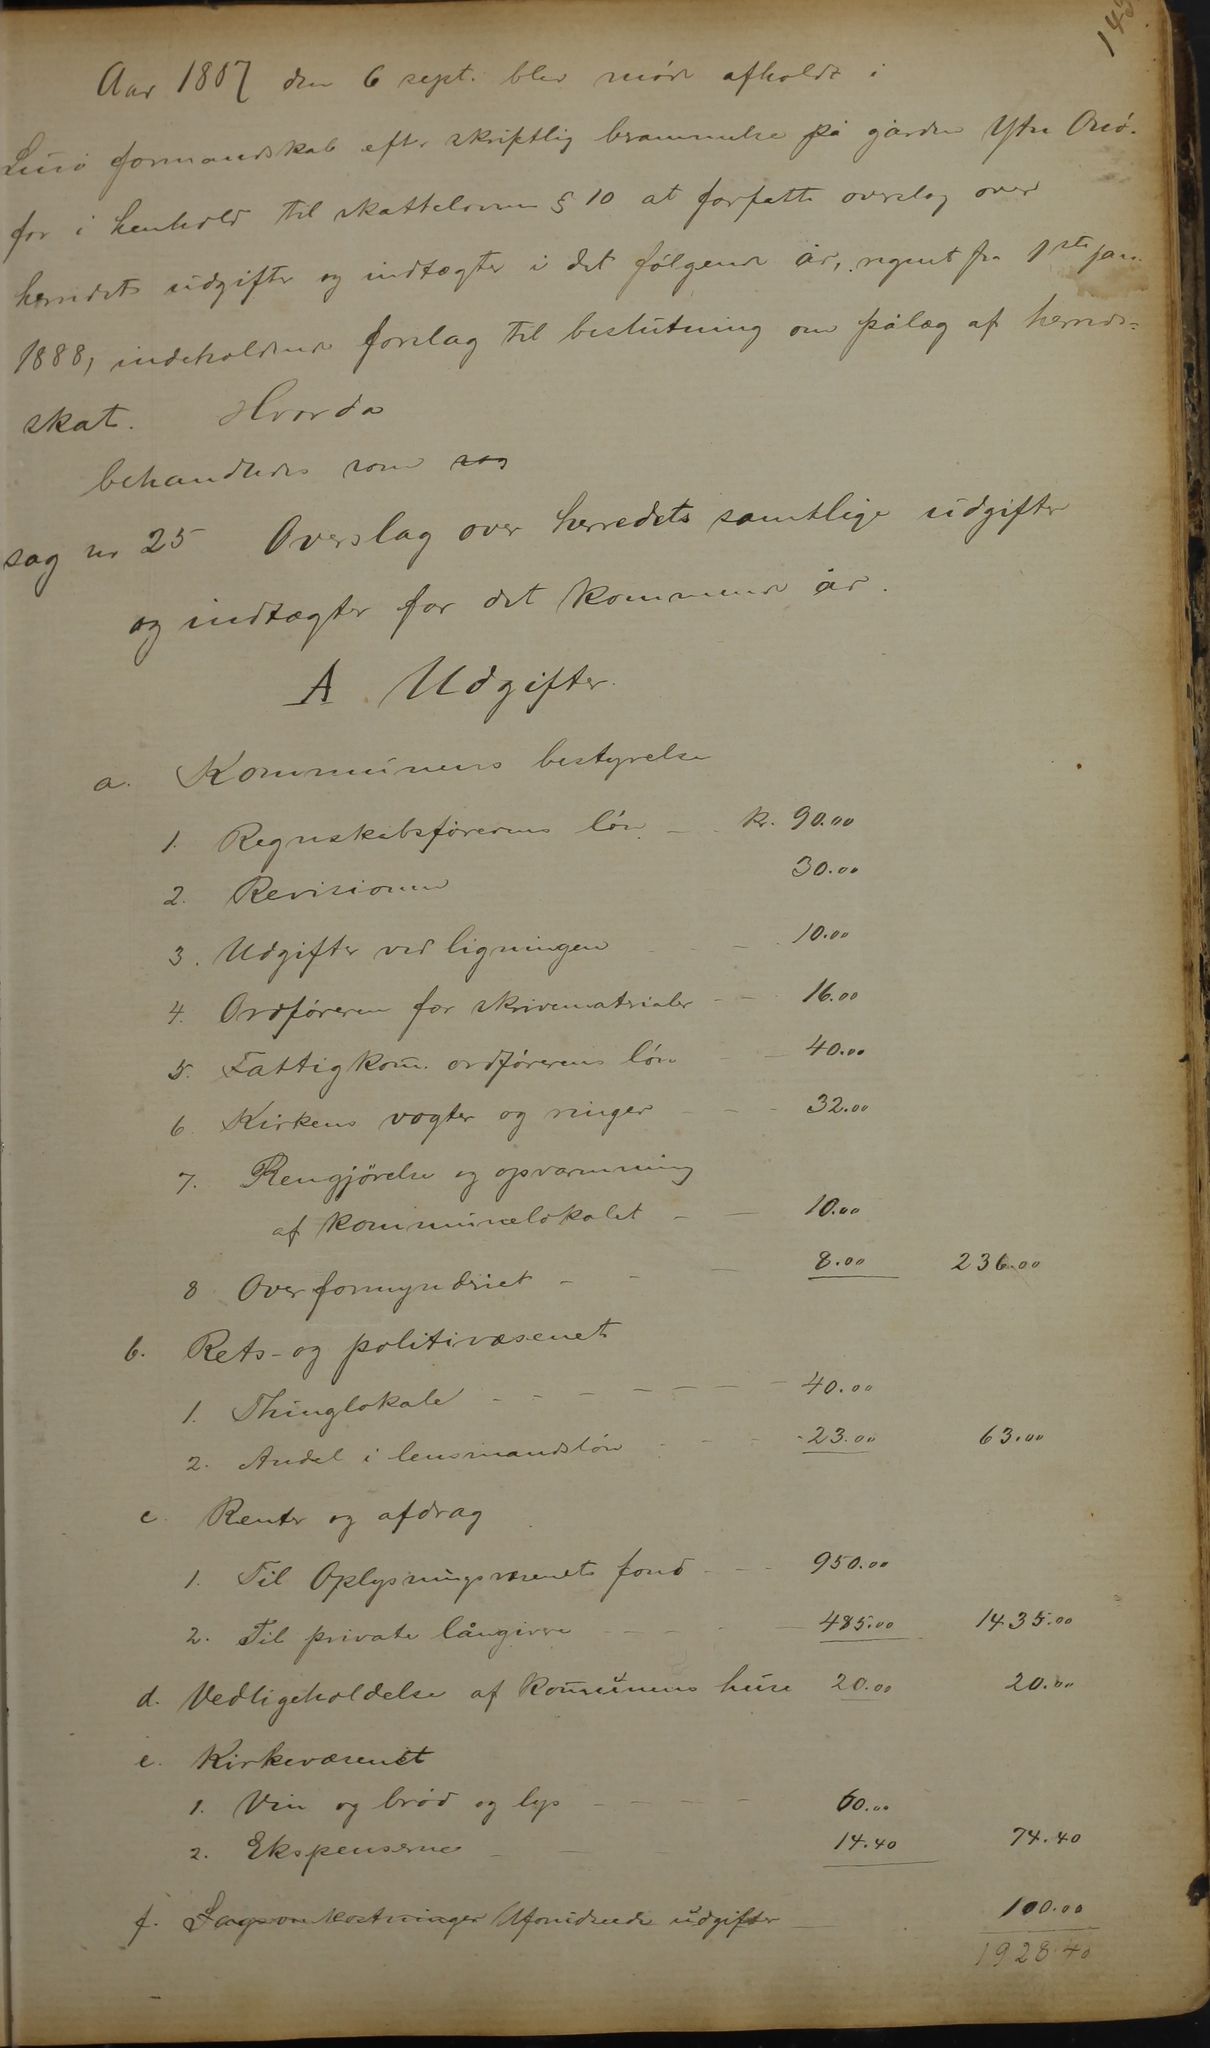 145
Aar 1887 den 6 sept. blev møde afholdt i
formandskab efter skriftlig berammelse på gården Ytre
for i henhold til skatteloven § 10 at forfatte overslag over
herredets udgifter og indtægter i det følgende år, regnet fra 1ste jan.
1888, indeholdende forslag til beslutning om pålæg af herreds-
skat. Hvorda
behandledes som sag
sag nr 25 Overslag over herredets samtlige udgifter
og indtægter for det kommende år.
A Udgifter.
a. Kommunens bestyrelse
1. Regnskabsførerens løn — kr. 90.00
2. Revisionen 30.00
3. Udgifter ved ligningen - - 10.00
4. Ordføreren for skrivematerialer - - 16.00
5. Fattigkom̄. ordførerens løn - - 40.00
6. Kirkens vogter og ringer - - - 32.00
7. Rengjørelse og opvarmning
af kommunelokalet - - 10.00
8 Overformynderiet - - - 8.00 236.00
b. Rets- og politivæsenet
1. Thinglokale - - - - - - - 40.00
2. Andel i lensmandsløn - - - 23.00 63.00
c. Renter og afdrag
1. Til Oplysningsvæsenets fond - - - 950.00
2. Til private långivere - - - - - 485.00 1435.00
d. Vedligeholdelse af kom̄unens huse 20.00 20.00
e. Kirkevæsenet
1. Vin og brød og lys - - - - - 60.00
2. Ekspenserne - - - 14.40 74.40
f. Sagsomkostninger Uforudseede udgifter — 100.00
1928.40